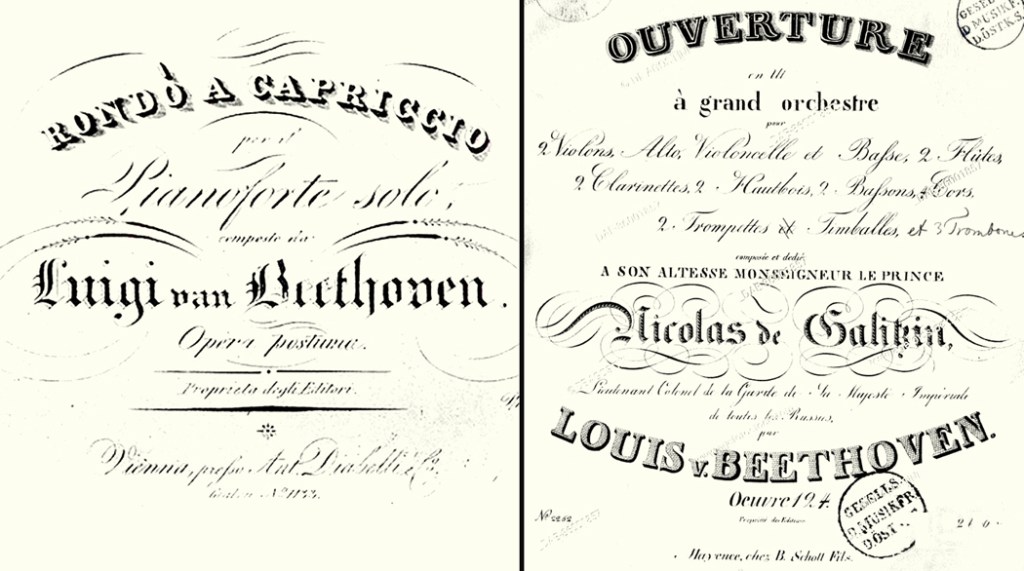 RONDÒ A CAPRICCIO
per il
Pianoforte solo,
composto da
Luigi van Beethoven.
Opera postuma.
Proprietà degli Editori.
Vienna, presso Ant. Diabelli e
OUVERTURE
en Ut
à grand orchestre
pour
2 Violons, Alto, Violoncelle et Basse, 2 Flûtes,
2 Clarinettes, 2 Hautbois, 2 Bassons, 4 Cors,
2 Trompettes et Timballes, et 3 Trombones
composée et dediée
A SON ALTESSE MONSEIGNEUR LE PRINCE
Nicolas de Galitzin,
Lieutenant Colonel de la Garde de Sa Majesté Impériale
de toutes les Russies,
par
LOUIS v. BEETHOVEN.
Oeuvre 124.
Propriété des Editeurs
Nº 2262
Mayence, chez B. Schott Fils.
GESELLS.
D. MUSIKFR.
D. ÖST.
GESELL
D MUSIKF.
D.ÖST K.S.